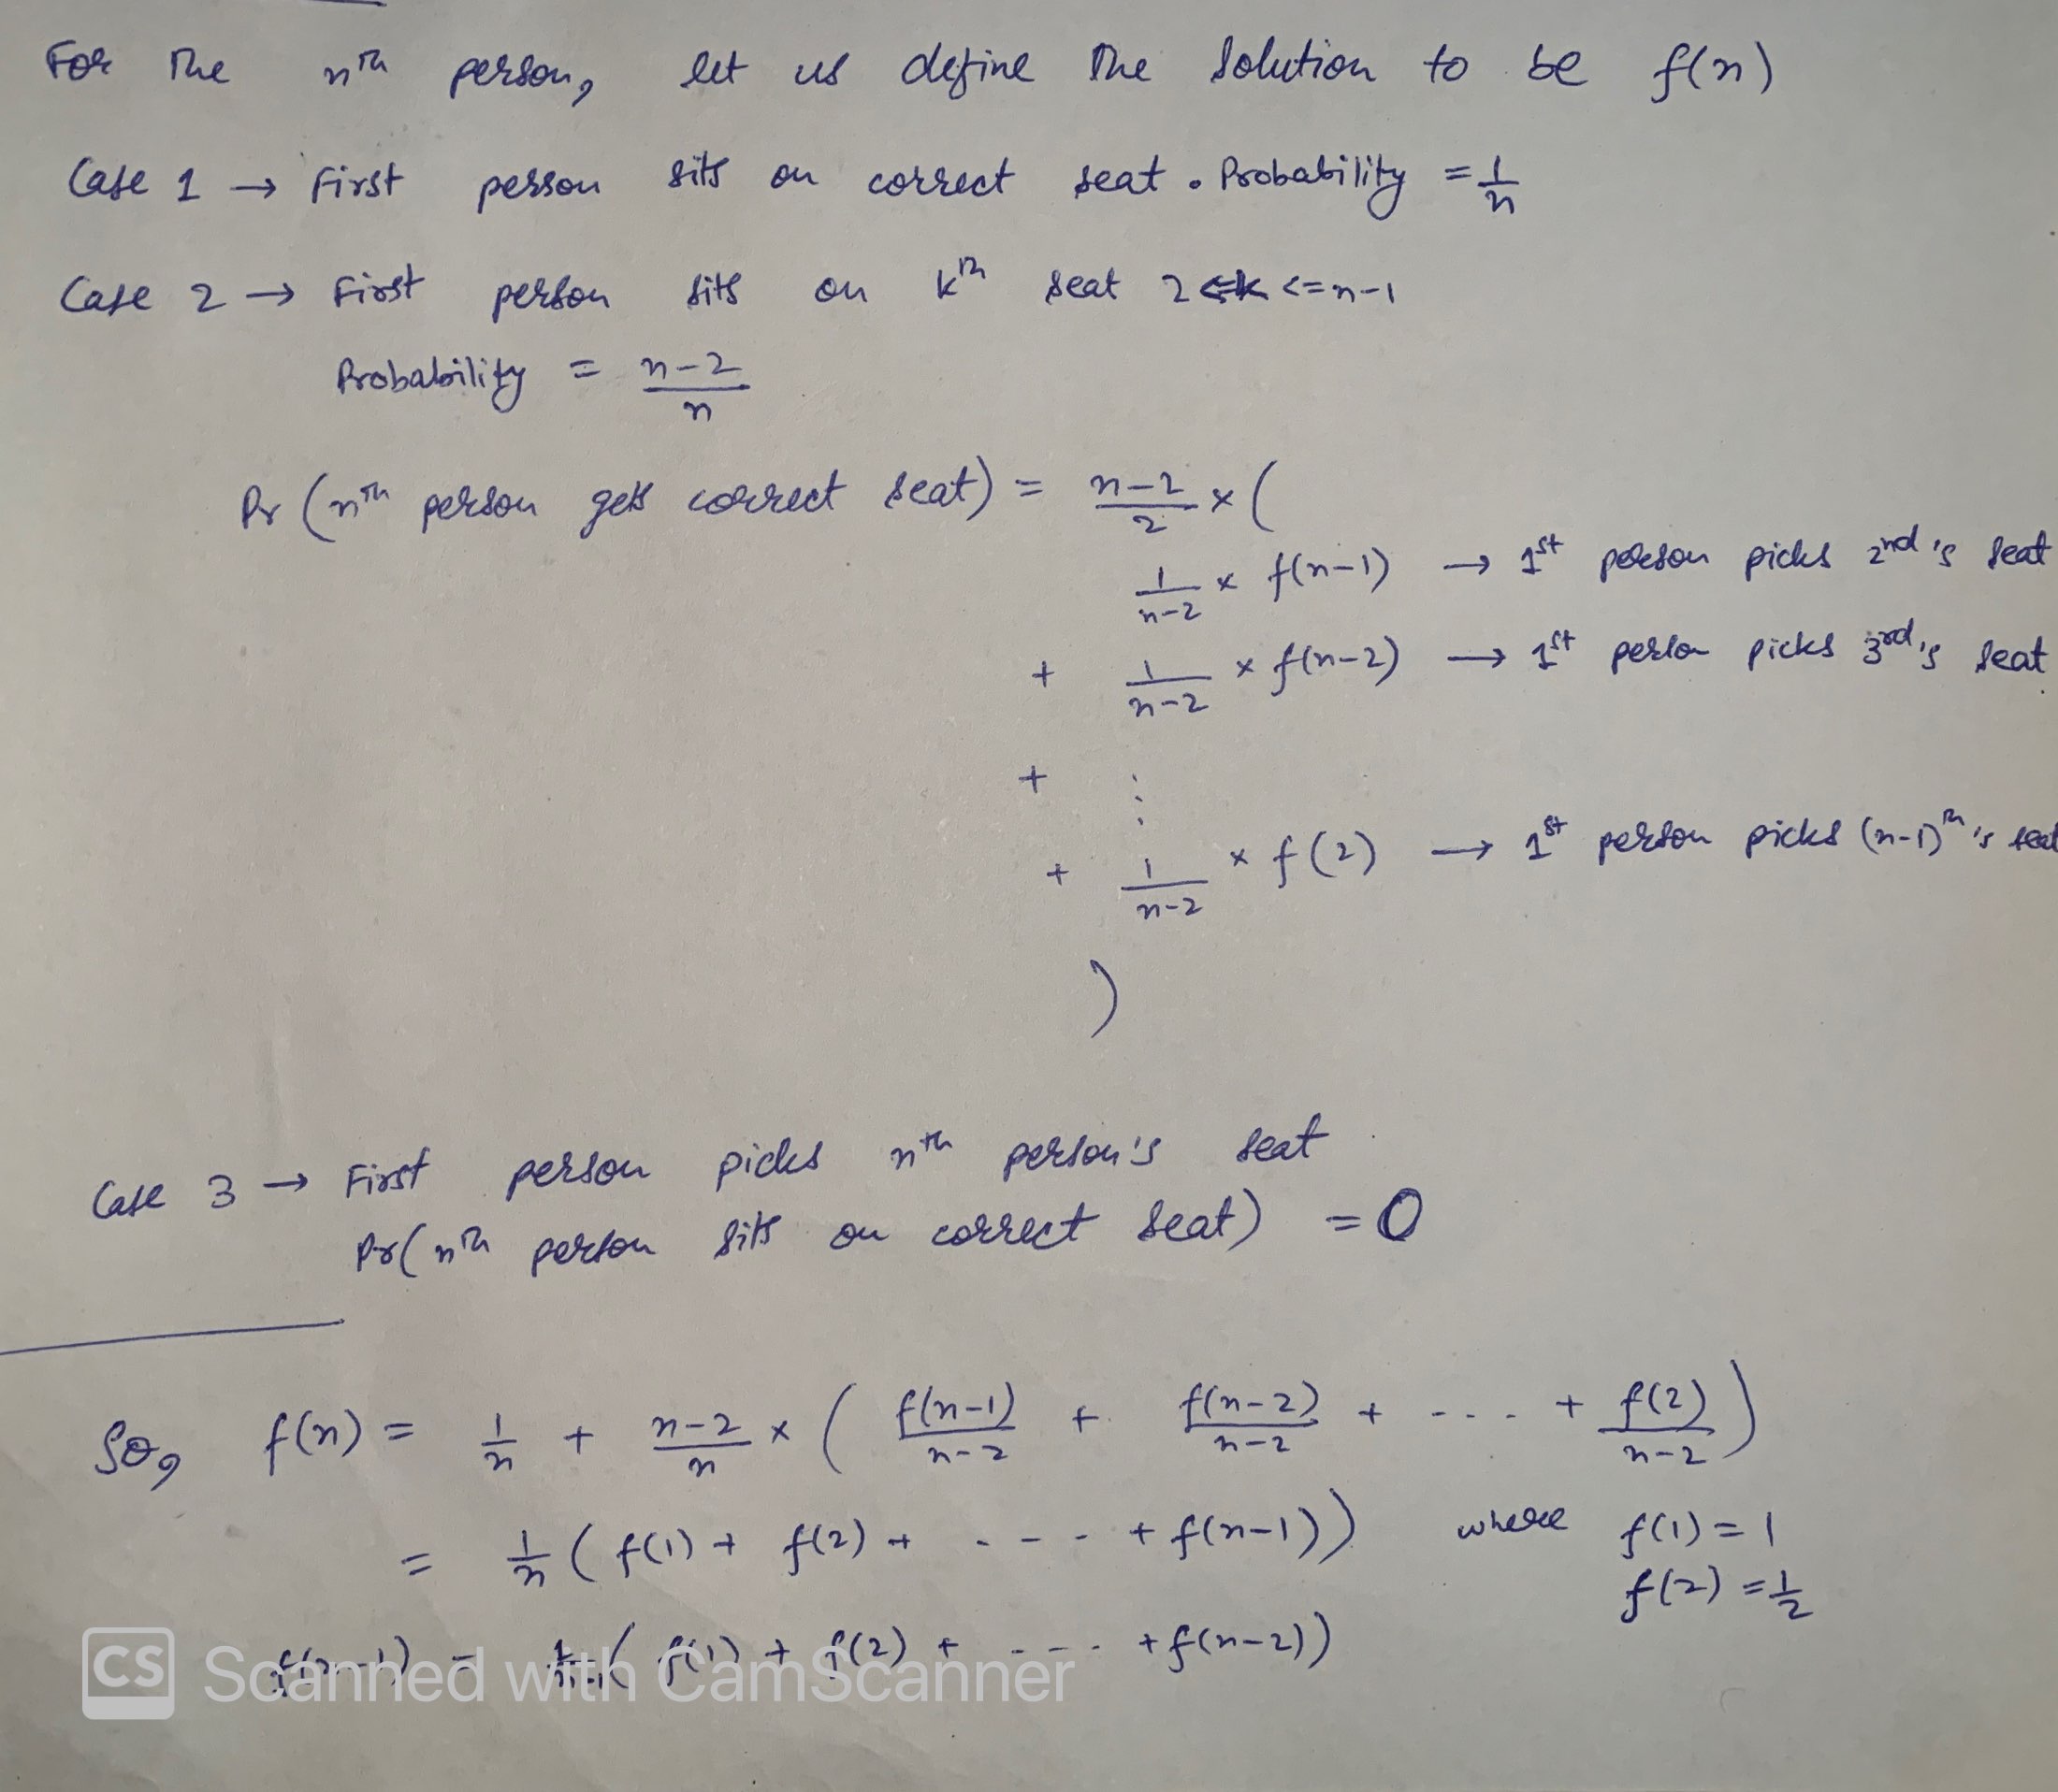 For the nth person, let us define the solution to be f(n)
Case 1 → First person sits on correct seat. Probability = 1/n
Case 2 → First person sits on kth seat 2 <=k <=n-1
Probability = (n-2)/n
Pr (nth person gets correct seat) = (n-2)/2 × (
1/(n-2) × f(n-1) → 1st person picks 2nd's seat
+ 1/(n-2) × f(n-2) → 1st person picks 3rd's seat
+ ⋮
+ 1/(n-2) × f(2) → 1st person picks (n-1)th's seat
)
Case 3 → First person picks nth person's seat
Pr(nth person sits on correct seat) = 0
So, f(n) = 1/n + (n-2)/n × ( f(n-1)/(n-2) + f(n-2)/(n-2) + ---- + f(2)/(n-2) )
= 1/n ( f(1) + f(2) + ---- + f(n-1)) where f(1) = 1
f(2) = 1/2
f(n-1) = 1/(n-1) ( f(1) + f(2) + ---- + f(n-2))
CS Scanned with CamScanner